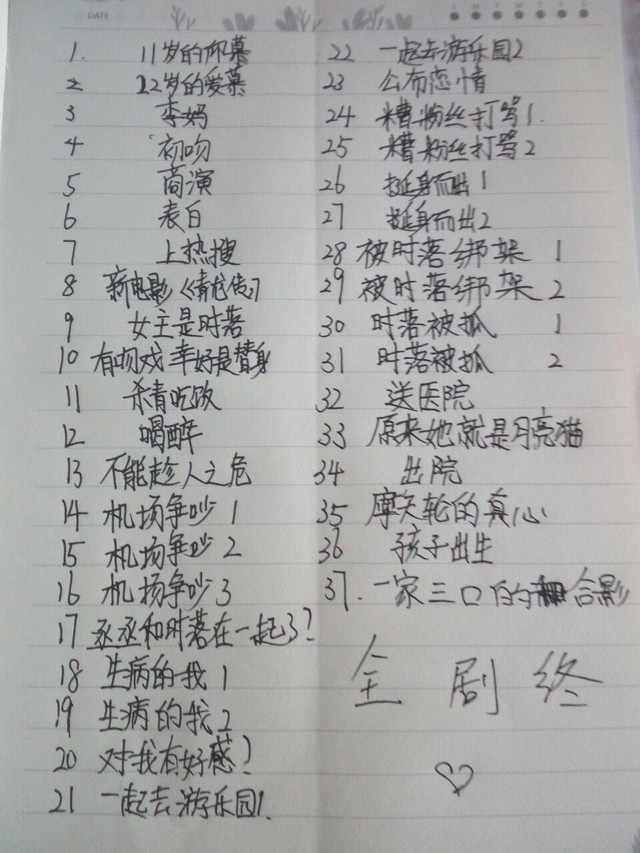 DATE
S M T W T F S
1. 11岁的仰慕
2 22岁的爱慕
3 李妈
4 初吻
5 商演
6 表白
7 上热搜
8 新电影《青龙传》
9 女主是时落
10 有吻戏 幸好是替身
11 杀青吃饭
12 喝醉
13 不能趁人之危
14 机场争吵1
15 机场争吵2
16 机场争吵3
17 丞丞和时落在一起了?
18 生病的我1
19 生病的我2
20 对我有好感?
21 一起去游乐园1.
22 一起去游乐园2
23 公布恋情
24 糟粉丝打骂1.
25 糟粉丝打骂2
26 挺身而出1
27 挺身而出2
28 被时落绑架 1
29 被时落绑架 2
30 时落被抓 1
31 时落被抓 2
32 送医院
33 原来她就是月亮猫
34 出院
35 摩天轮的真心
36 孩子出生
37. 一家三口的合影
全剧终